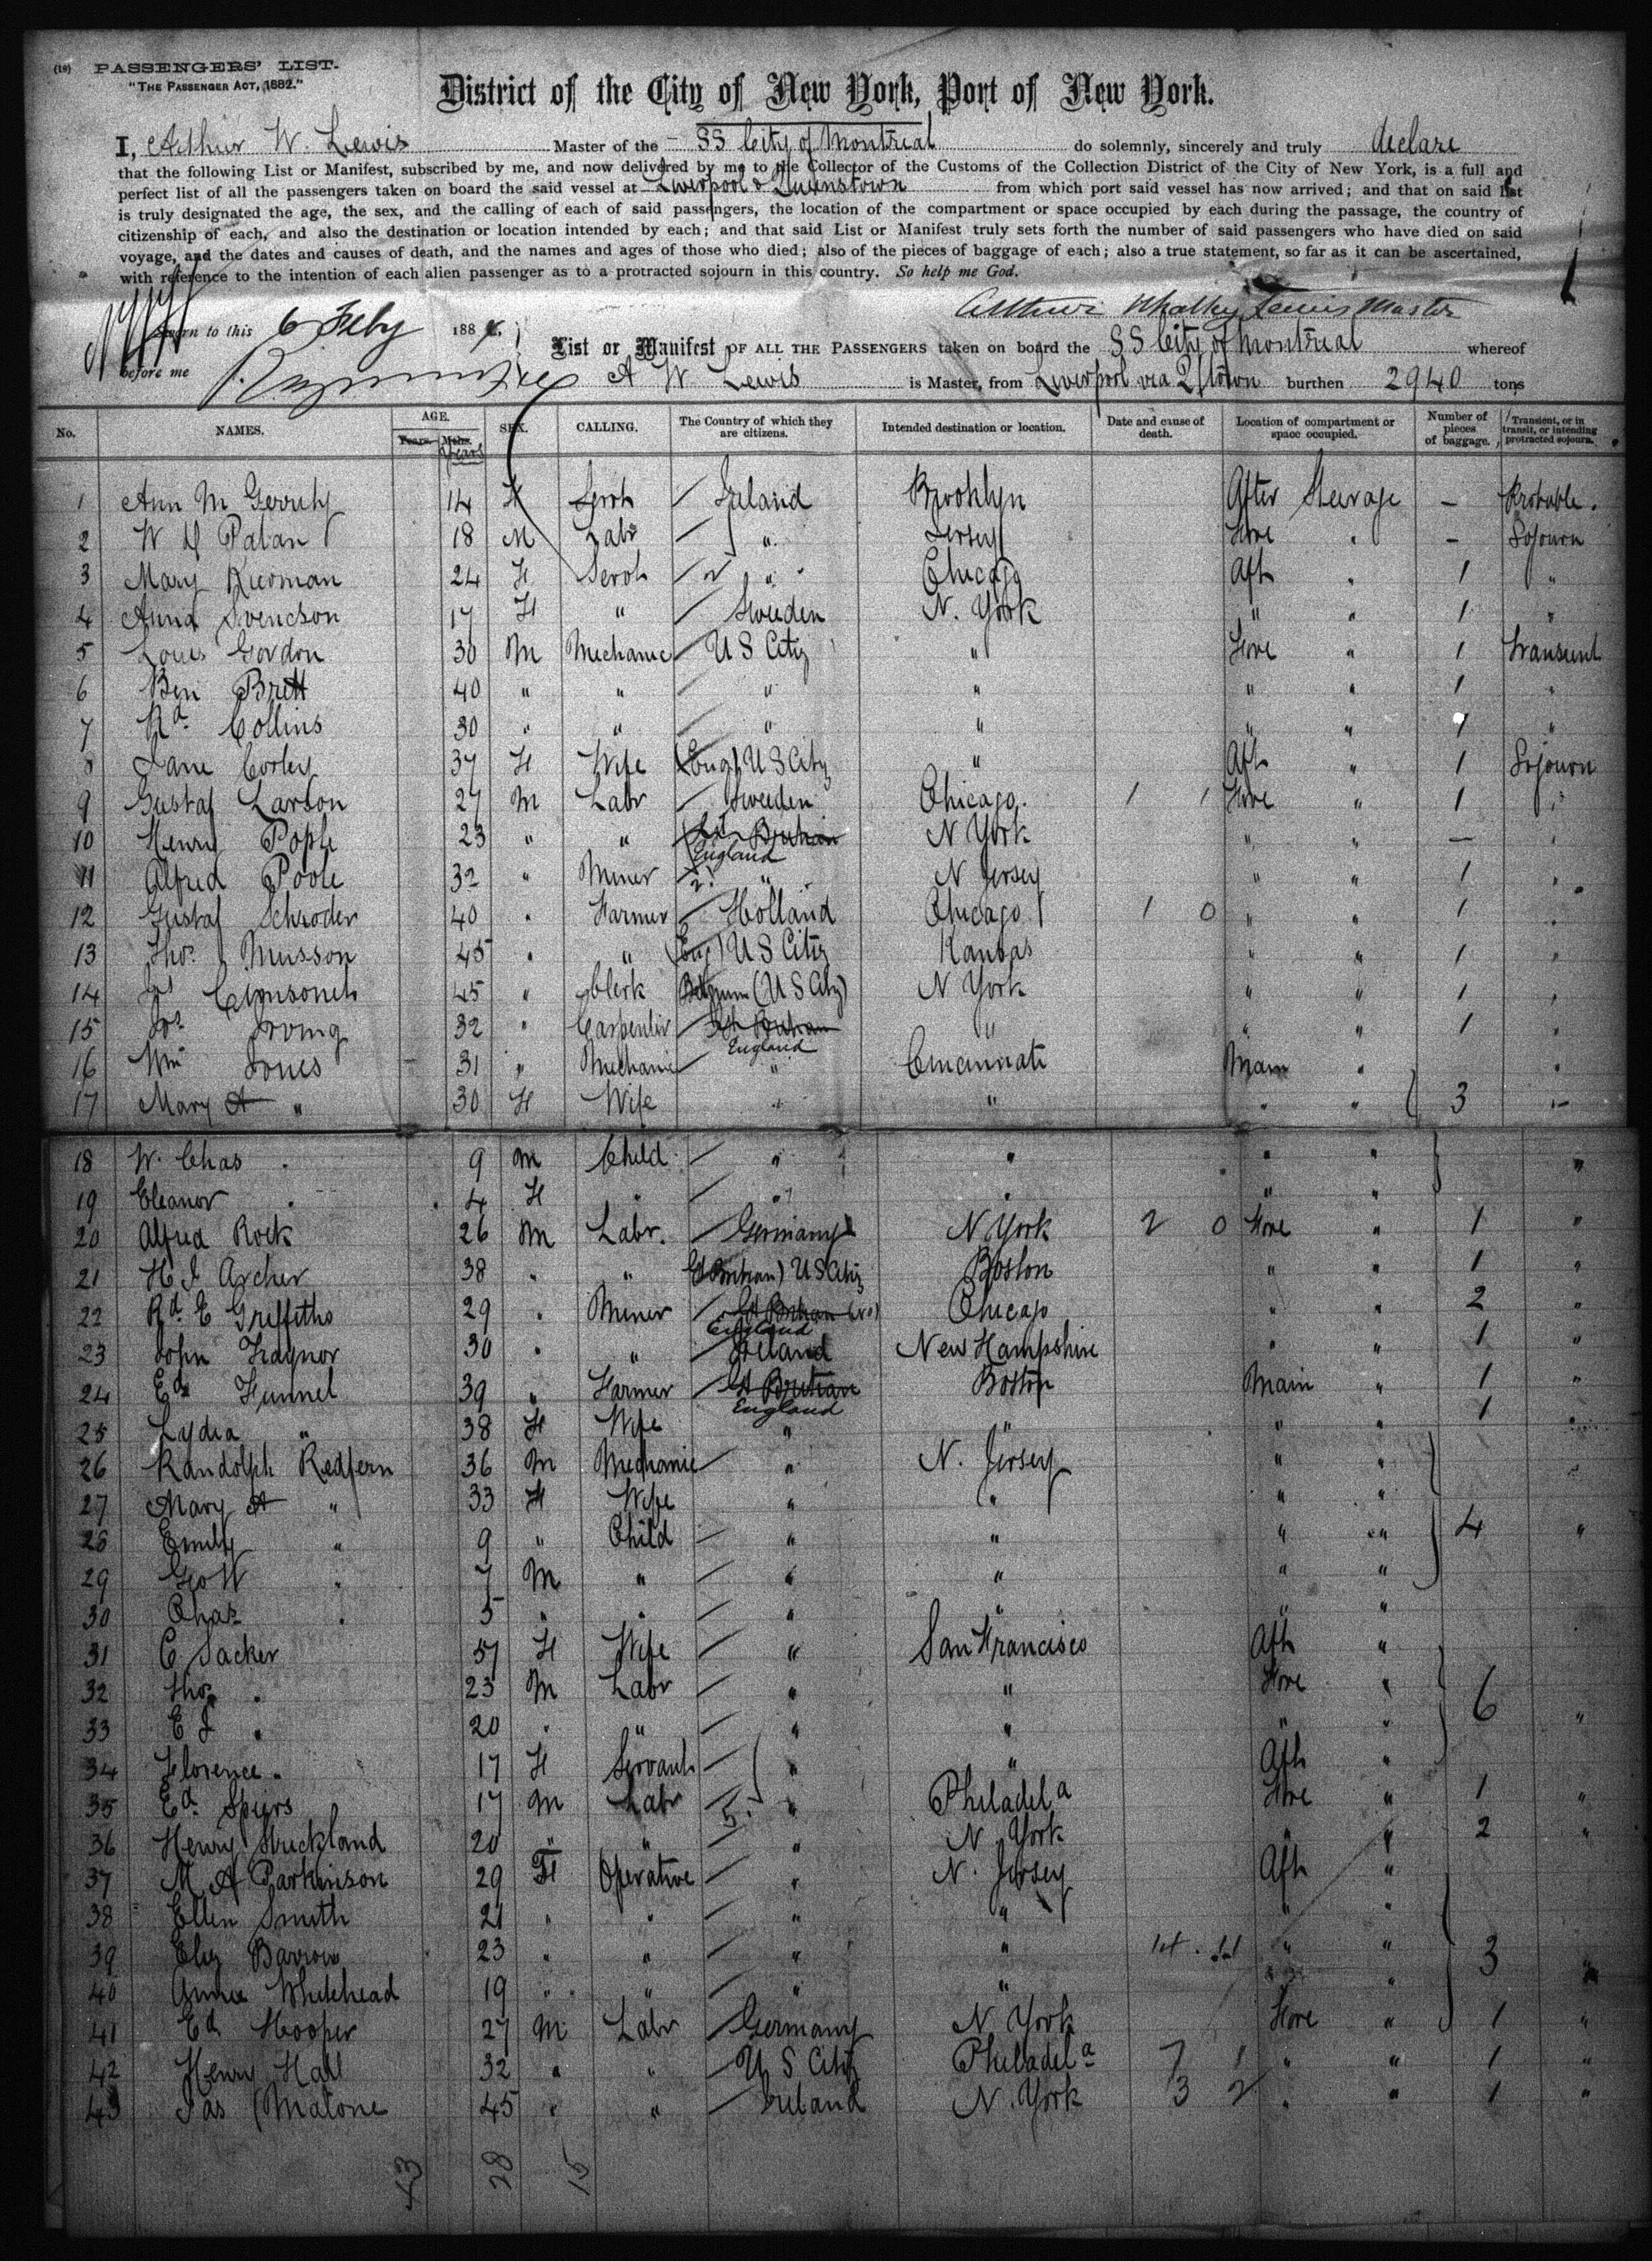 (19) PASSENGERS' LIST.
"THE PASSENGER ACT, 1882."
District of the City of New York, Port of New York.
I, Arthur W. Lewis Master of the SS City of Montreal do solemnly, sincerely and truly declare
that the following List or Manifest, subscribed by me, and now delivered by me to the Collector of the Customs of the Collection District of the City of New York, is a full and
perfect list of all the passengers taken on board the said vessel at Liverpool & Queenstown from which port said vessel has now arrived; and that on said list
is truly designated the age, the sex, and the calling of each of said passengers, the location of the compartment or space occupied by each during the passage, the country of
citizenship of each, and also the destination or location intended by each; and that said List or Manifest truly sets forth the number of said passengers who have died on said
voyage, and the dates and causes of death, and the names and ages of those who died; also of the pieces of baggage of each; also a true statement, so far as it can be ascertained,
with reference to the intention of each alien passenger as to a protracted sojourn in this country. So help me God.
Arthur Whalley Lewis Master
Sworn to this 6 Feby 188
before me
List or Manifest OF ALL THE PASSENGERS taken on board the SS City of Montreal whereof
A W Lewis is Master, from Liverpool via Q'town burthen 2940 tons
No. NAMES. AGE. Years. Mths. Years SEX. CALLING. The Country of which they are citizens. Intended destination or location. Date and cause of death. Location of compartment or space occupied. Number of pieces of baggage. Transient, or in transit, or intending protracted sojourn.
1 Ann M Gerrity 14 F Servt Ireland Brooklyn After Steerage - Probable.
2 W Patan 18 M Labr " Jersey Fore " - Sojourn
3 Mary Kiernan 24 F Servt " Chicago Aft " 1 "
4 Anna Svendson 17 F " Sweden N. York " " 1 "
5 Louis Gordon 30 M Mechanic U S City " Fore " 1 Transient
6 Ben Brett 40 " " " " " " 1 "
7 Rd Collins 30 " " " " " " 1 "
8 Jane Corley 37 F Wife (Eng) U S City " Aft " 1 Sojourn
9 Gustaf Larson 27 M Labr Sweden Chicago 1 1 Fore " 1 "
10 Henry Pople 23 " " Gt Britain England N York " " - "
11 Alfred Poole 32 " Miner " N Jersey " " 1 "
12 Gustaf Schroder 40 " Farmer Holland Chicago 1 0 " " 1 "
13 Thos Musson 45 " " (Eng) U S City Kansas " " 1 "
14 45 " Clerk Belgium (U S City) N York " " 1 "
15 Irving 32 " Carpenter Gt Britain England " " " 1 "
16 Wm Jones 31 " Mechanic " Cincinnati Main " "
17 Mary A " 30 F Wife " " " " 3 "
18 W. Chas " 9 M Child " " " " "
19 Eleanor " 4 F " " " " "
20 Alfred Rock 26 M Labr. Germany N York 2 0 Fore " 1 "
21 H J Archer 38 " " (Gt Britain) U S City Boston " " 1 "
22 Rd E Griffiths 29 " Miner Gt Britain England Chicago " " 2 "
23 John Traynor 30 " " Ireland New Hampshire " " 1 "
24 Ed Funnel 39 " Farmer Gt Britain England Boston Main " 1 "
25 Lydia " 38 F Wife " " " " 1 "
26 Randolph Redfern 36 M Mechanic " N. Jersey " " "
27 Mary A " 33 F Wife " " " "
28 Emily " 9 " Child " " " " 4 "
29 " 7 M " " " " "
30 Chas " 5 " " " " " "
31 C Sacker 57 F Wife " San Francisco Aft "
32 Thos " 23 M Labr " " Fore "
33 E J " 20 " " " " " " 6 "
34 Florence " 17 F Servant " " Aft "
35 Ed. Spiers 17 M Labr " Philadela Fore " 1 "
36 Henry Strickland 20 " " " N. York " " 2 "
37 M A Parkinson 29 F Operative " N. Jersey Aft "
38 Ellen Smith 21 " " " " " "
39 Eliz Barrow 23 " " " " " " 3 "
40 Annie Whitehead 19 " " " " "
41 Ed Hooper 27 M Labr Germany N. York Fore " 1 "
42 Henry Hall 32 " " U S City Philadela 7 1 " " 1 "
43 Jas Malone 45 " " Ireland N. York 3 2 " " 1 "
43 28 15